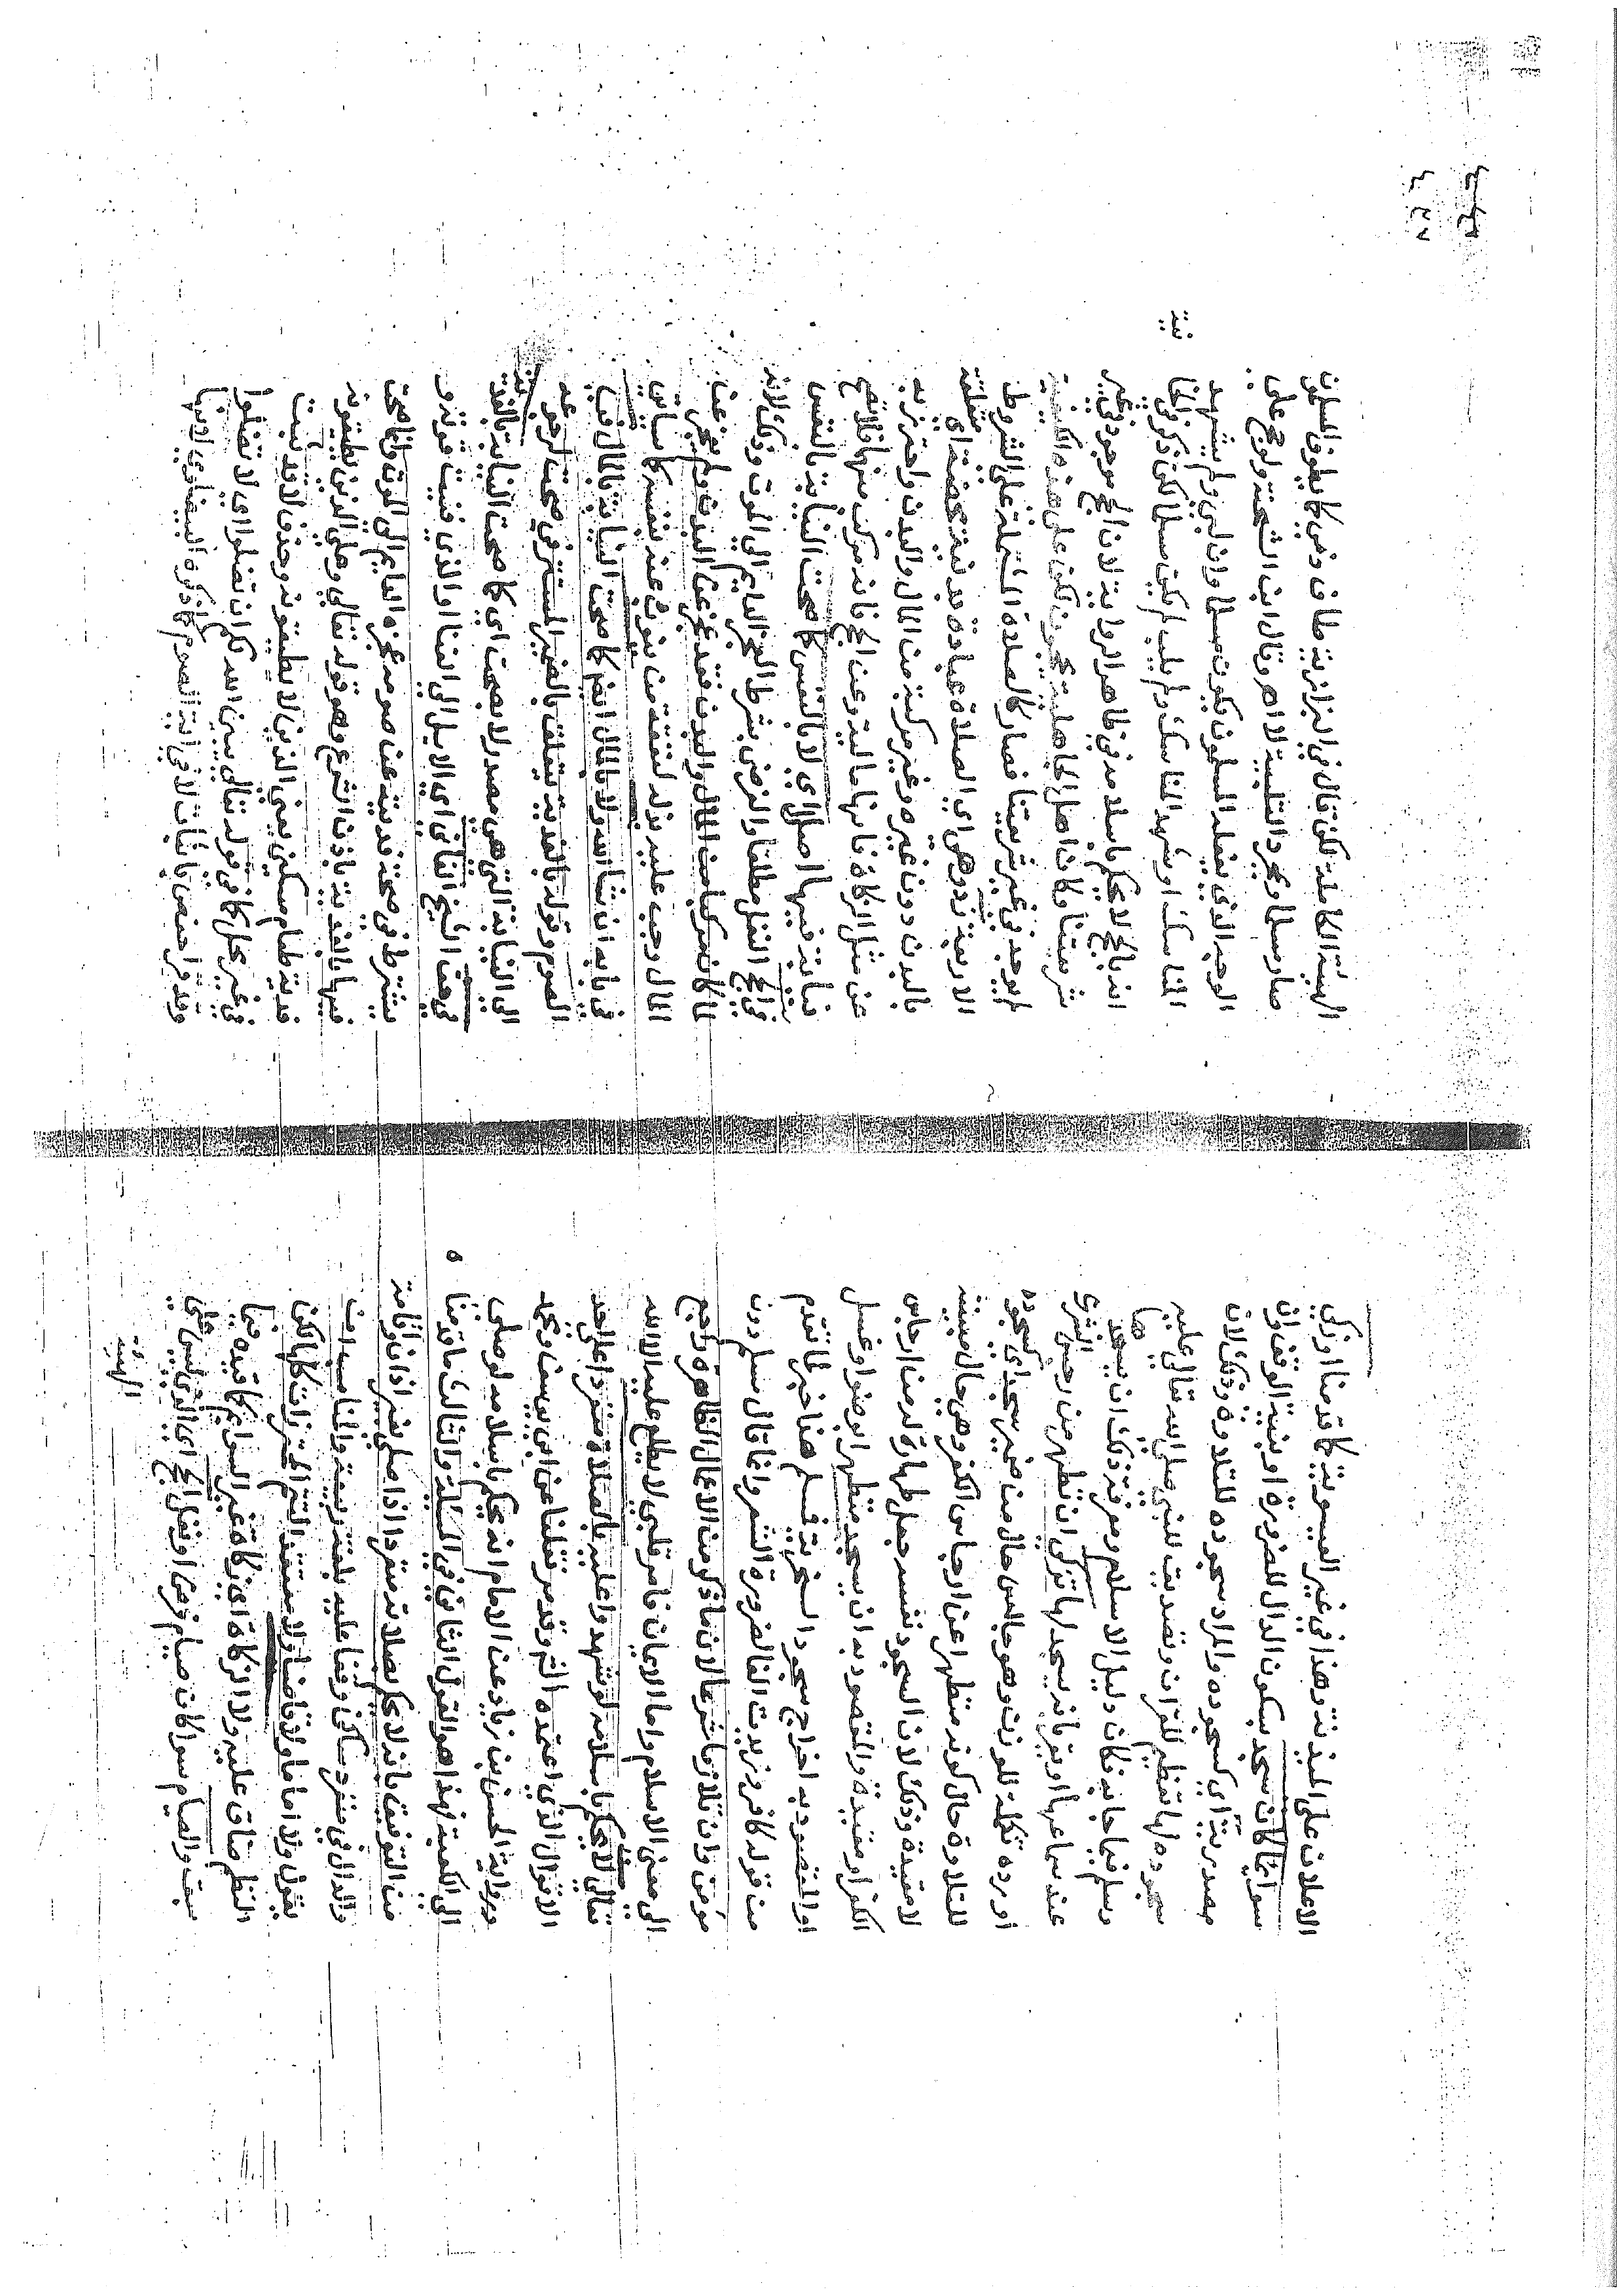 الاعلان على الميذنة وهذا في غير العيسوية كما قدمنا اوزكي
سوايما كان سجد بسكون الدال للضرورة او بنية الوقف وان
مصدرية اي كسجوده والمراد سجوده للتلاوة وذلك لان
سجوده لها تعظيم للقران وتصديق للنبي صلى الله تعالى عليه
وسلم فيما جا به فكان دليل الاسلام ومعرفة ذلك ان يسجد
عند سماعها او يقر بانه يسجد لها تزكى ان تطهر من رجس الشرك
اورده تكملة للوزن وهو جالس حال من ضمير سجد اي كسجوده
للتلاوة حال كونه متطهرا عن ارجاس الكفر وهي حال مبينة
لا مقيدة وذلك لان السجود نفسه جعل طهارة له من ارجاس
الكفر او مقيدة والمقصود به ان يسجد متطهرا بوضوا وغسل
او المقصود به اخراج سجود السخرية فسلم هنا خبر لما تقدم
من قوله كافر وزيدت الفا لضرورة الشعر وانما قال مسلم دون
مومن وان تلازما شرعا لان ما ذكر من الاعمال الظاهرة راجع
الى معنى الاسلام واما الايمان فامر قلبي لا يطلع عليه الا الله
تعالى لا يحكم باسلامه لو شهدوا عليه بالصلاة منفردا على احد
الاقوال الذي اعتمده الثم وقد مر نقلنا عن ابي يوسف ومحمد
ورواية الحسن بن زياد عن الامام انه يحكم باسلامه لو صلى
الى الكعبة فهذا هو القول الثاني في المسئلة والثالث ما قدمنا
من التوفيق بانه لا يحكم بصلاته منفردا اذا صلى بغير اذان واقامة
والدال في منفرد ساكن وقفا عليه بلغة ربيعة والمناسب ان
يقول ولا اماما ولا معتقد التتم المحترزات كلها لكن
النظم ضاق عليه ولا الزكاة اي زكاة غير السوايم كما قيده فيما
سبق والصيام سوا كان صيام فرض او نفل الحج اي الذي ليس على
الهيئة
الهيئة الكاملة لكن قال في البزازية طاف وحج كما يطوف المسلمون
صار مسلما وبمجرد التلبية لا اهـ وقال ابن الشحنة ولو حج على
الوجه الذي يفعله المسلمون يكون مسلما وان لبى ولم يشهد
المناسك او شهد المناسك ولم يلب لم يكن مسلما لكن ذكر في
انه بالحج لا يحكم باسلامه في ظاهر الرواية لان الحج موجود في غير
شريعتنا وكان اهل الجاهلية يحجون لكن على هذه الكيفية
لم يوجد في غير شريعتنا فصار كالصلاة المشتملة على الشروط
الاربعة زد وهي اي الصلاة عبادة بدنية محضة اي متعلقة
بالبدن دون غيره وغير مركبة من المال والبدن واحترز به
عن مثل الزكاة فانها مالية وعن الحج فانه مركب منهما فلا تصح
نيابة فيها اصلا اي لا بالنفس كما صحت النيابة بالنفس
في الحج النفل مطلقا والفرض بشرط العجز الدايم الى الموت وذلك لانه
لما كان مركبا من المال والبدن فقد عجز عن البدن ولم يعجز عن
المال وجب عليه بذله لنفقة من ينوب عنه بنفسه كما سياتي
في بابه ان شا الله ولا بالمال ايض كما صحت النيابة بالمال في باب
الصوم وقوله بالفدية يتعلق بالضمير المستتر في صحت لرجوعه
الى النيابة التي هي مصدر لا بصحت اي كما صحت النيابة بالفدية
في حق الشيخ الفاني اي الايل الى الفنا او الذي فنيت قوته و
يشترط في صحة فديته عن صومه عجزه الدايم الى الموت وانما صحت
فيها بالفدية باذن الشرع وهو قوله تعالى وعلى الذين يطيقونه
فدية طعام مسكين يعني الذين لا يطيقونه وحذف لا قد ثبت
في غير محل كما في قوله تعالى يبين الله لكم ان تضلوا اي لا تضلوا